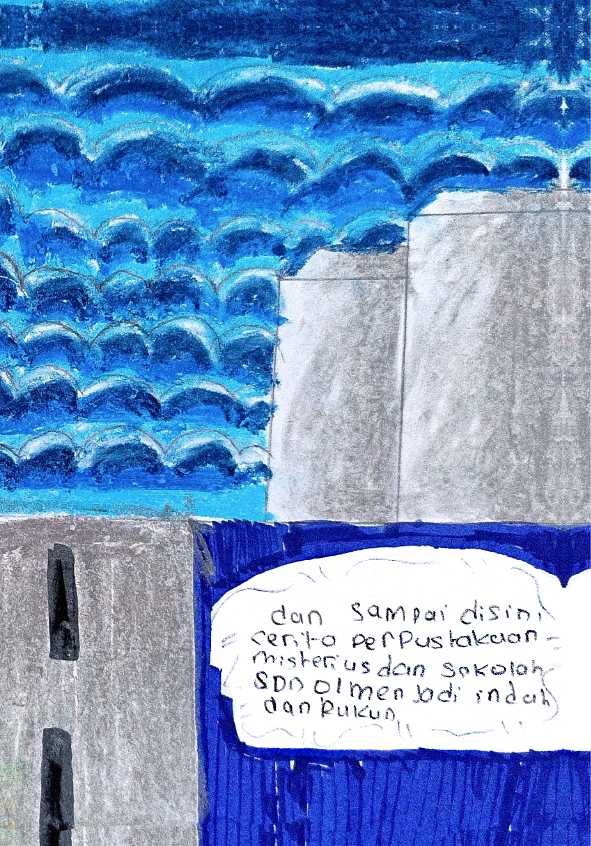 dan sampai disini
cerita perpustakaan
misterius dan sokolah
SDN 01 menjadi indah
dan Rukun